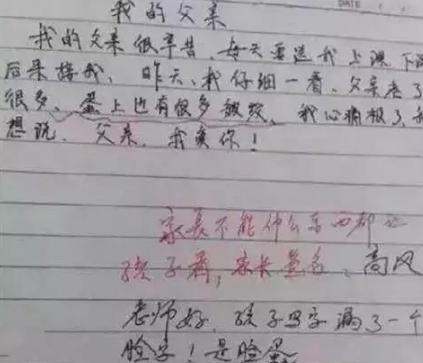 我的父亲
DATE
我的父亲很辛苦，每天要送我上课下课
后来接我，昨天，我仔细一看，父亲老了
很多，蛋上也有很多皱纹，我心痛极了，我
想说，父亲，我爱你！
家长不能什么东西都让
孩子看，家长签名、高风
老师好，孩子写字漏了一个
脸字！是脸蛋